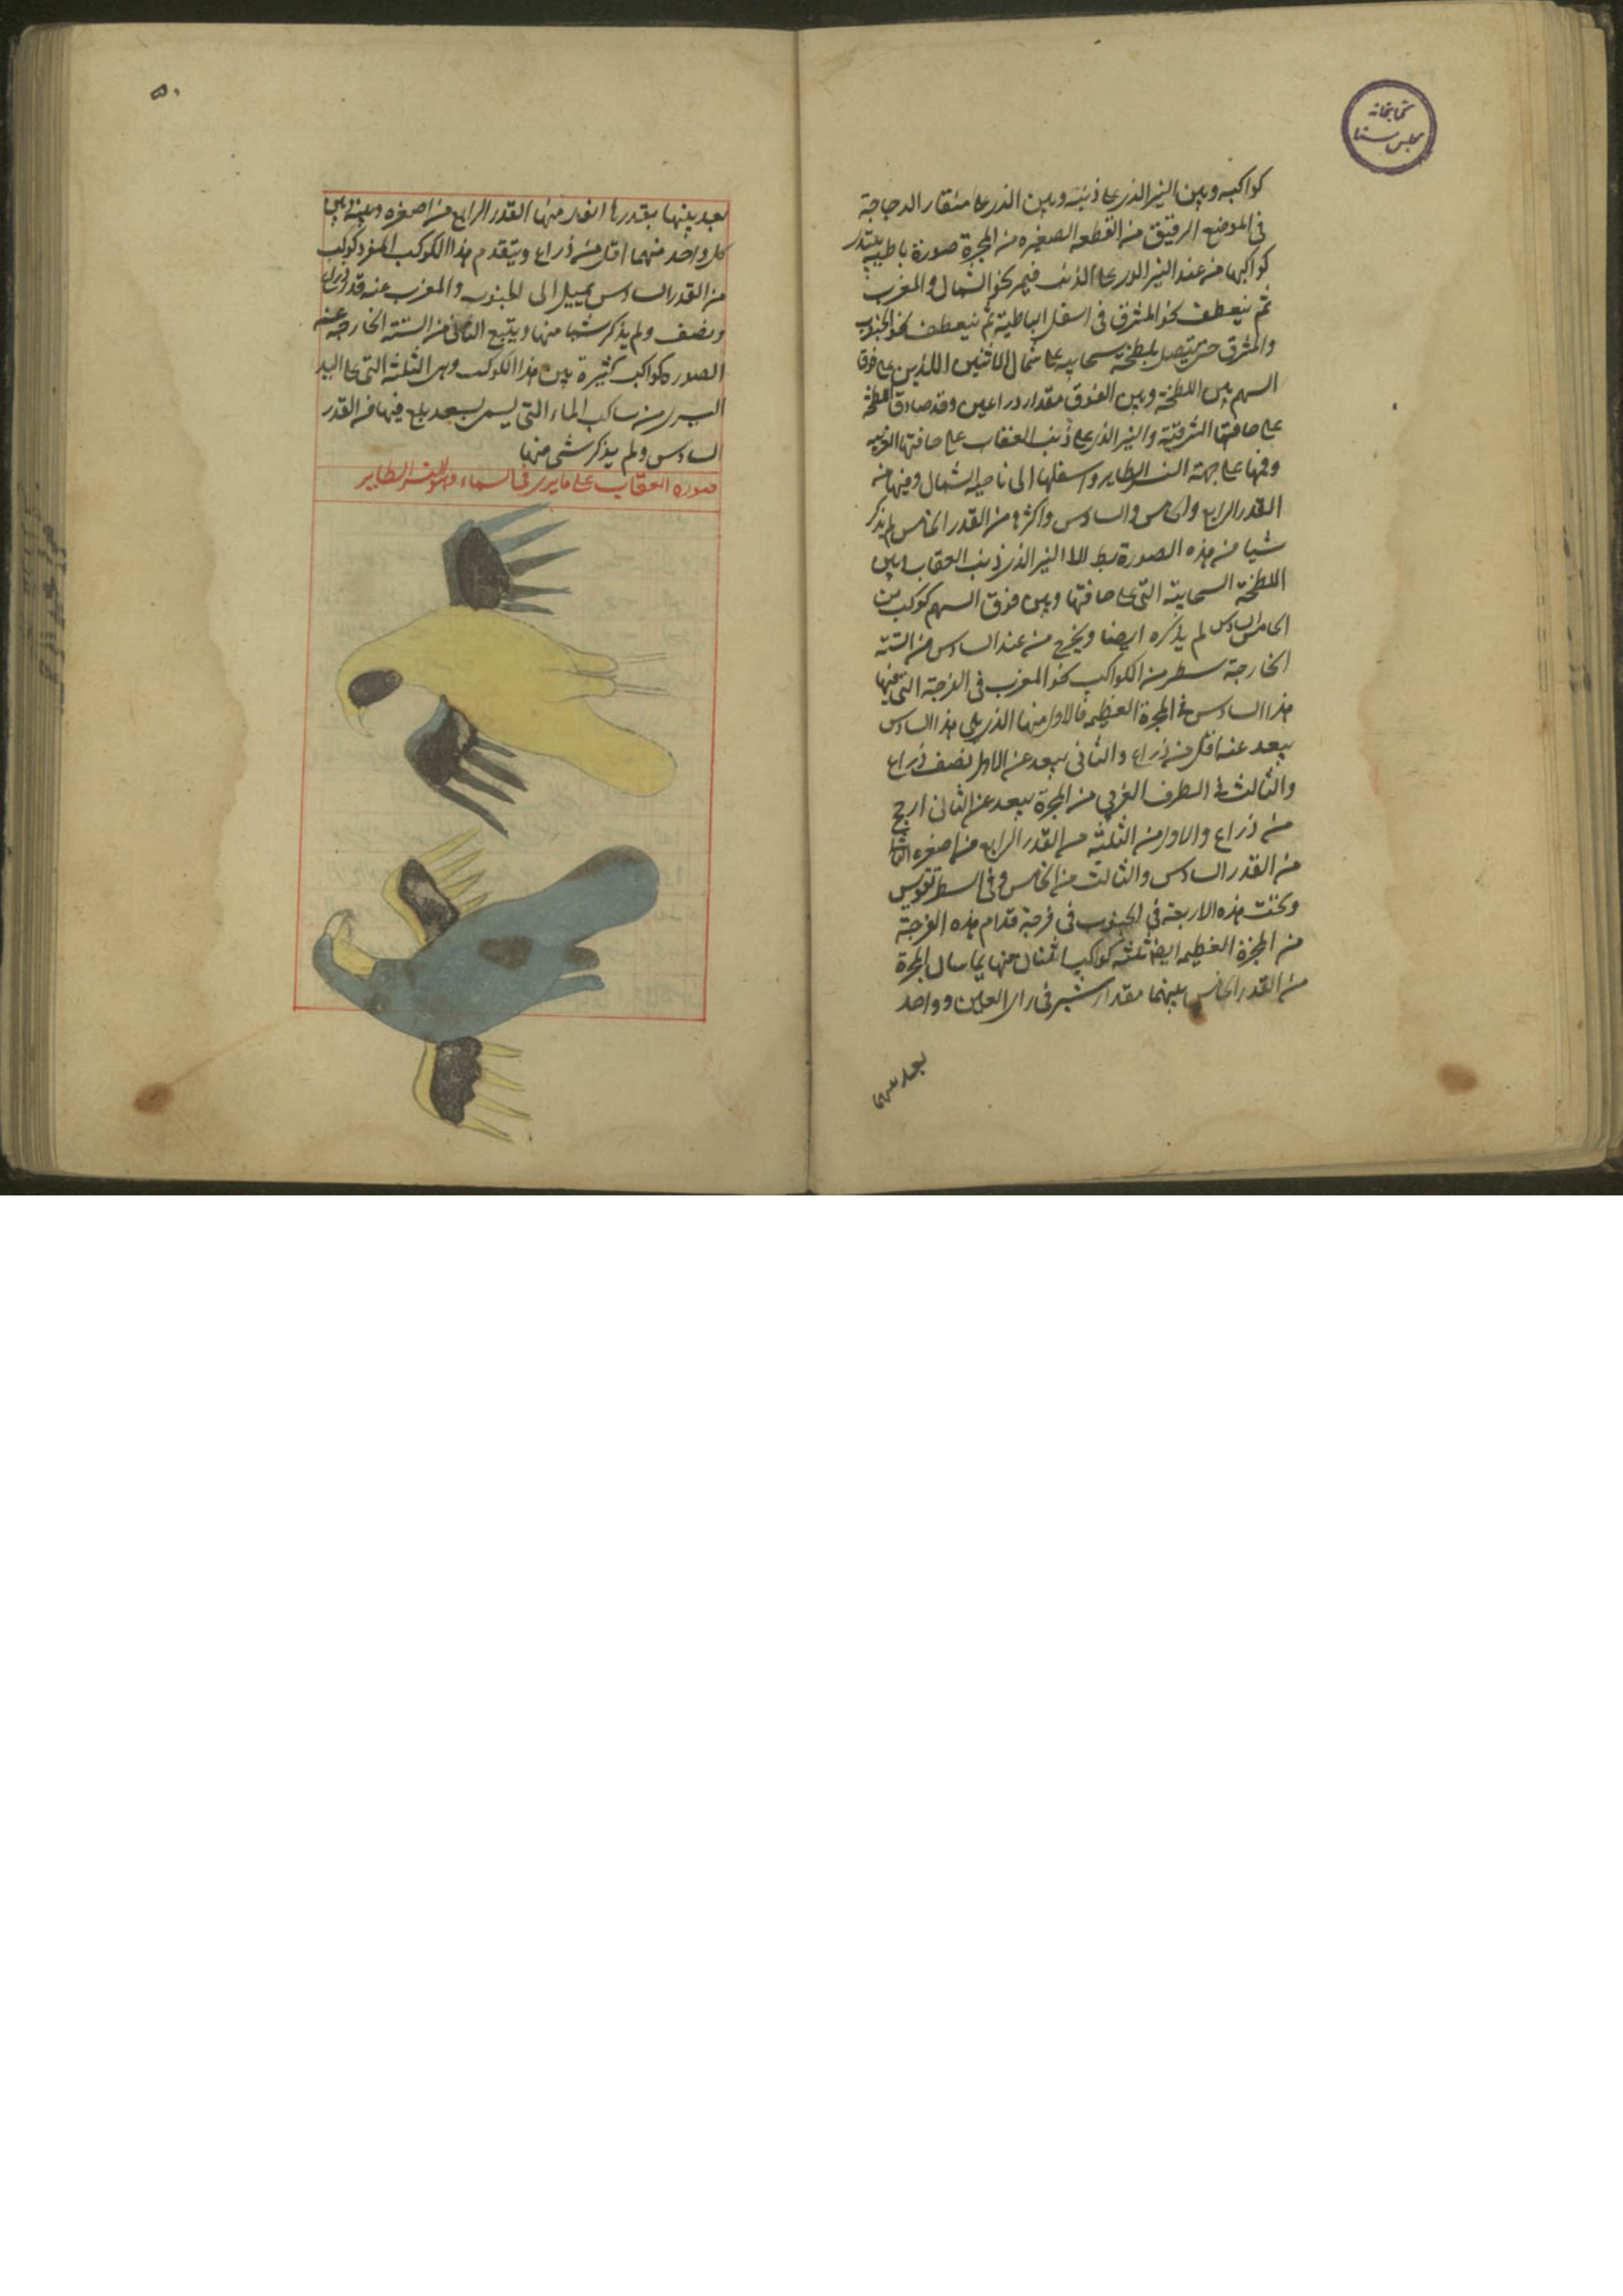 كتابخانه
مجلس سنا
كواكبه وبين النير الذى على ذنبه وبين الذى على منقار الدجاجة
فى الموضع الرقيق من القطعه الصغيره من المجرة صورة باطيه يبتدر
كواكبها من عند النير الذى على الذنب فيمر نحو الشمال والمغرب
ثم ينعطف نحو المشرق فى اسفل الباطية ثم ينعطف نحو الجنوب
والمشرق حتى يتصل بلطخة سحابيه على شمال الاثنين اللذين على فوق
السهم بين اللطخة وبين الفوق مقدار ذراعين وقد صادق اللطخة
على حافتها الشرقية والنير الذى على ذنب العقاب على حافتها الغربيه
وفمها على جهة النسر الطاير واسفلها الى ناحية الشمال وفيها من
القدر الرابع والخامس والسادس واكثرها من القدر الخامس لم يذكر
شيا من هذه الصورة بطلا الا النير الذى ذنب العقاب وبين
اللطخة السحابية التى على حافتها وبين فوق السهم كوكب من
الخامس السادس لم يذكره ايضا ويخرج من عند السادس من الستة
الخارجة سطر من الكواكب نحو المغرب فى الفرجة التى فيها
هذا السادس فى المجرة العظيمه فالاول منها الذى يلى هذا السادس
يبعد عنه اقل من ذراع والثانى يبعد عن الاول نصف ذراع
والثالث فى الطرف الغربى من المجرة يبعد عن الثانى ارجح
من ذراع والاول من الثلثة من القدر الرابع من اصغره الثانى
من القدر السادس والثالث من الخامس وفى السطر تقويس
وتحت هذه الاربعة فى الجنوب فى فرجة قدام هذه الفرجة
من المجرة العظيمه ايضا ثلثه كواكب اثنان منها يماسان المجرة
من القدر الخامس بينهما مقدار شبر فى راى العين وواحد
بعد بينها
٥٠
بعد بينها بقدرها انور منها القدر الرابع من اصغره وبينه وبين
كل واحد منهما اقل من ذراع ويتقدم هذا الكوكب المنفرد كوكب
من القدر السادس يميل الى الجنوب والمغرب عنه قدر ذراع
ونصف ولم يذكر شيا منها ويتبع الثانى من الستة الخارجة عن
الصوره كواكب كثيرة بين هذا الكوكب وبين الثلثة التى على اليد
اليسرى من ساكب الماء التى يسمى سعد بلع فيها من القدر
السادس ولم يذكر شى منها
صورة العقاب على ما يرى فى السماء وهو النسر الطاير